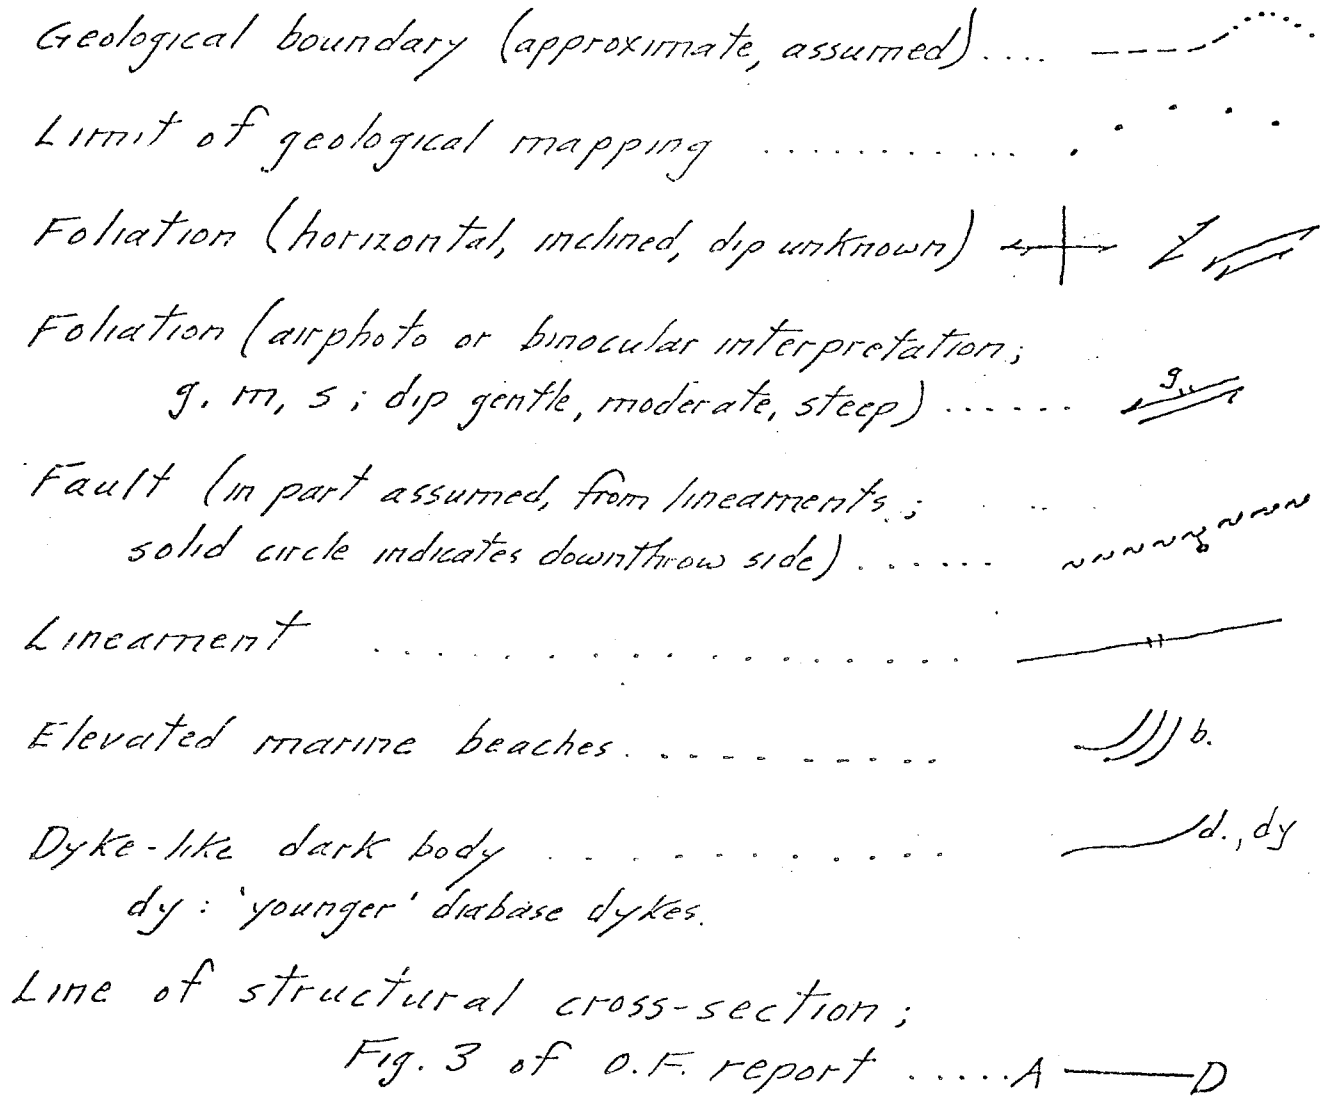 Geological boundary (approximate, assumed)....
Limit of geological mapping ............
Foliation (horizontal, inclined, dip unknown)
Foliation (airphoto or binocular interpretation;
g. m, s ; dip gentle, moderate, steep) ...... g
Fault (in part assumed, from lineaments ;
solid circle indicates downthrow side) ......
Lineament .............
Elevated marine beaches .......... b.
Dyke-like dark body .......... d., dy
dy : 'younger' diabase dykes.
Line of structural cross-section ;
Fig. 3 of O.F. report .....A D